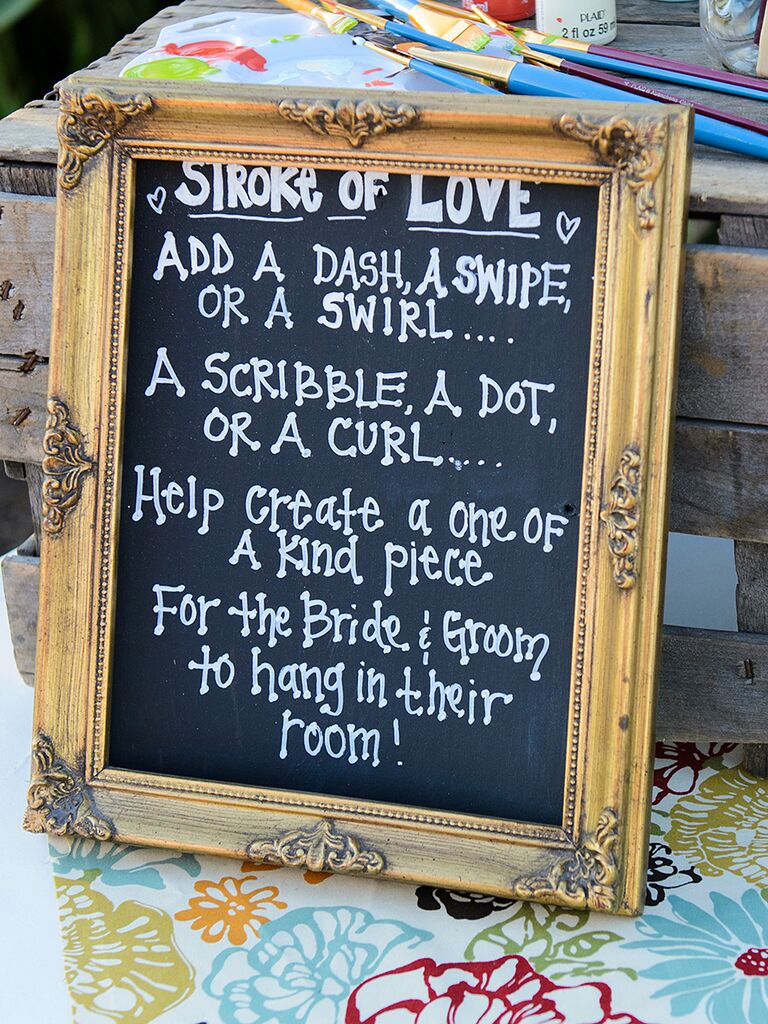 PLAID
2 fl oz 59
STROKE OF LOVE
ADD A DASH, A SWIPE,
OR A SWIRL....
A SCRIBBLE, A DOT,
OR A CURL.....
Help create a one OF
A Kind piece
For the Bride & Groom
to hang in their
room!